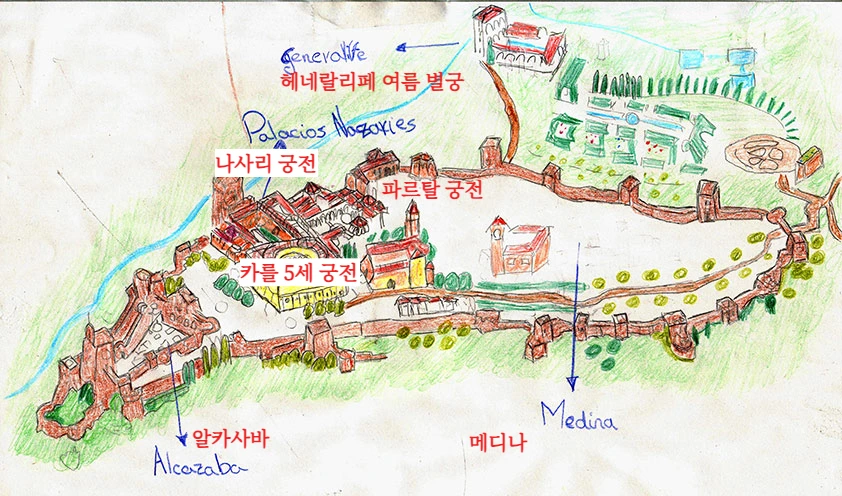 generalife
헤네랄리페 여름 별궁
Palacios Nazaries
나사리 궁전
파르탈 궁전
카를 5세 궁전
알카사바
Alcazaba
메디나
Medina